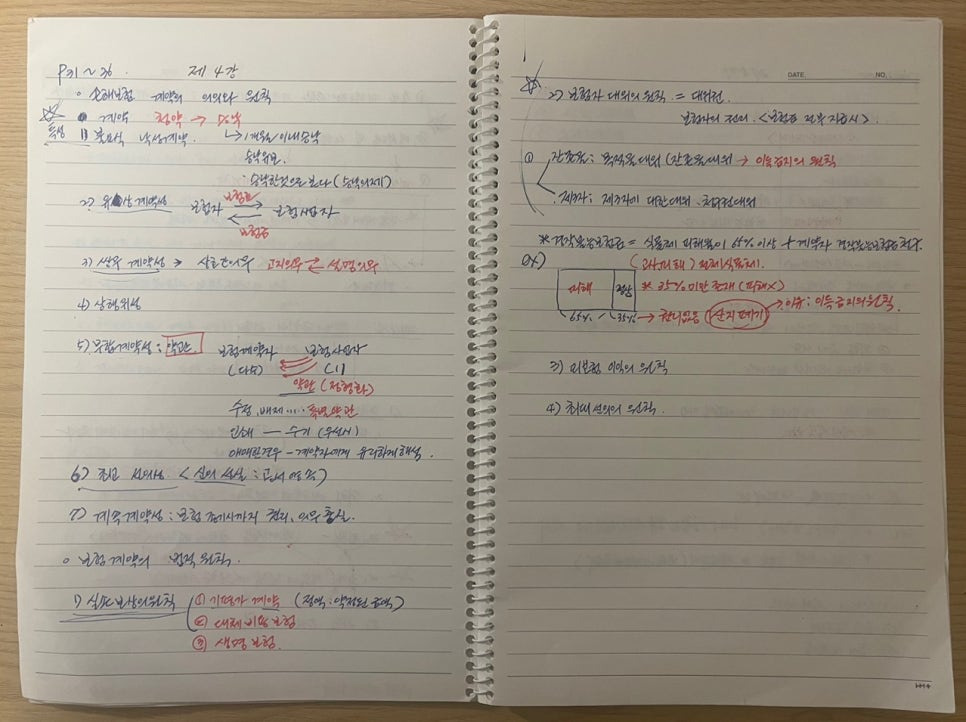 P31 ~ 36. 제 4 강
○ 손해보험 계약의 의의와 원칙
● 계약 청약 → 승낙
특성 1) 불요식 낙성계약. ↳ 1개월 이내 승낙
승낙
: 승낙한것으로 본다 (승낙의제)
2) 유상계약성 보험자 보험료 보험사업자
보험금
3) 쌍무 계약성 → 고지의무 설명의무
4) 상행위성
5) 부합계약성 : 약관 보험계약자 보험사업자
(다수) (1)
약관 (정형화)
수정, 배제 .... 특별약관
인쇄 — 수기 (우선시)
애매한경우 — 계약자에게 유리하게 해석.
6) 최고 선의성 < 신의 성실 :
7) 계속계약성 : 보험 까지 권리, 의무 충실.
○ 보험계약의 법적 원칙.
1) 실손보상의 원칙 ① 기평가 계약 (정액 : 약정된 금액)
② 대체비용보험
③ 생명보험.
DATE. NO.
2) 보험자 대위의 원칙 = 대위권.
보험자의 권리 <보험금 전부 지급시>.
① 잔존물 : 목적물대위 (잔존물대위 → 이득금지의 원칙
제3자 : 제3자에 대한대위, 청구권대위
* 경작불능보험금 = 식물체 피해율이 65% 이상 + 계약자 경작불능보험금 신청.
ex) (고사피해) 전체식물체).
피해 정상 * 35% 미만 존재 (피해x)
65% / 35% → 권리없음 (산지폐기) → 이유 : 이득금지의 원칙.
3) 피보험 이익의 원칙
4) 최대 선의의 원칙.